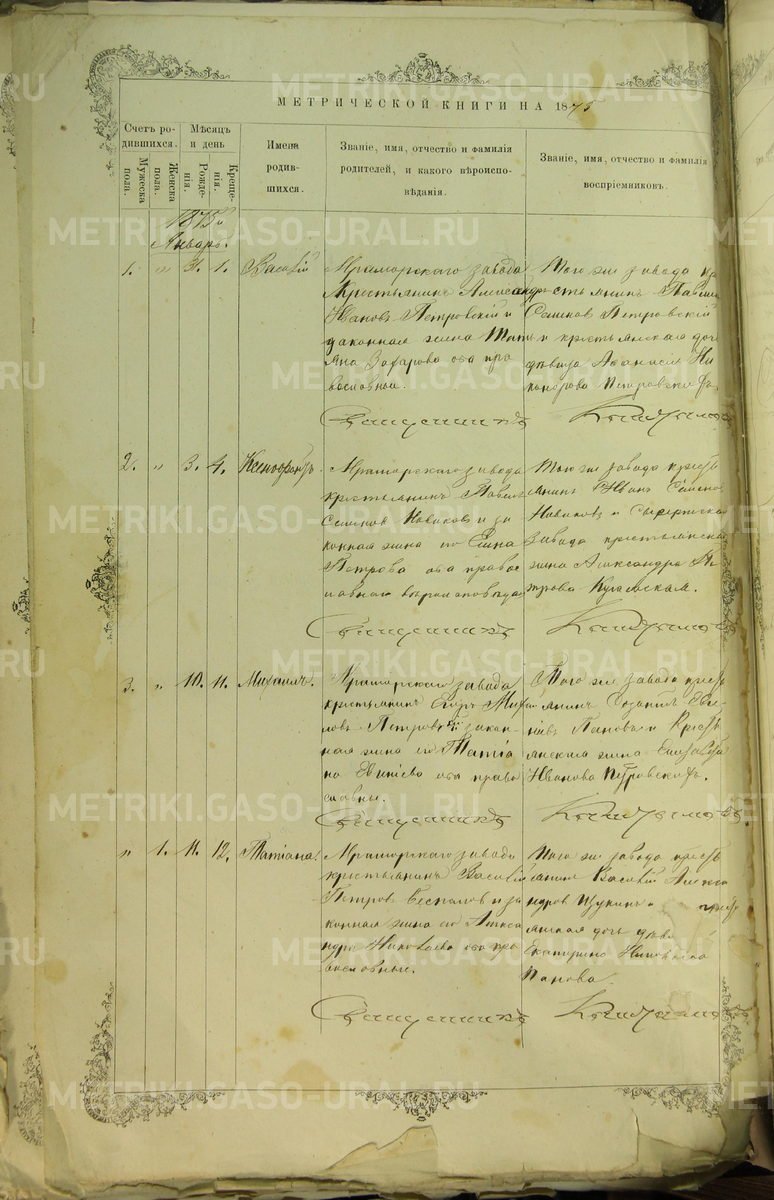 МЕТРИЧЕСКОЙ КНИГИ НА 1875
Счетъ ро-
дившихся.
Мужеска
пола.
Женска
пола.
Мѣсяцъ
и день
Рожде-
нія.
Креще-
нія.
Имена
родив-
шихся.
Званіе, имя, отчество и фамилія
родителей, и какого вѣроиспо-
вѣданія.
Званіе, имя, отчество и фамилія
воспріемниковъ.
1875
Январь.
1. " 31. 1. Василій
Мраморскаго завода
Крестьянинъ Александръ
Ивановъ Петровскій и
законная жена Тать
яна Захарова оба пра
вославныи.
Того же завода кре
стьянинъ Павелъ
Семеновъ Петровскій
и крестьянская дочь
девица Афанасья Ни
канорова Петровскихъ
Священникъ
2. " 3. 4. Ксенофонтъ.
Мраморскаго завода
крестьянинъ Павелъ
Семеновъ Новиковъ и за
конная жена его Елена
Петрова оба право
славнаго
Того же завода кресть
янинъ Иванъ Семено
Новиковъ и Сысертска
завода крестьянска
жена Александра Пе
трова
Священникъ
3. " 10. 11. Михаилъ.
Мраморскаго завода
крестьянинъ Егоръ Михай
ловъ Петровскій закон
ная жена его Татіа
на оба право
славны.
Того же завода кресть
янинъ
Пановъ и Кресть
янская жена Елизавета
Иванова Петровскихъ.
Священникъ
" 1. 11. 12. Татіана.
Мраморскаго завода
крестьянинъ Василій
Петровъ Беспаловъ и за
конная жена его Алекса
ндра Николаева оба пра
вославные.
Того же завода кресть
янинъ Василій Алекса
ндровъ Щукинъ и кресть
янская дочь девица
Екатерина Николаева
Панова.
Священникъ
METRIKI.GASO-URAL.RU